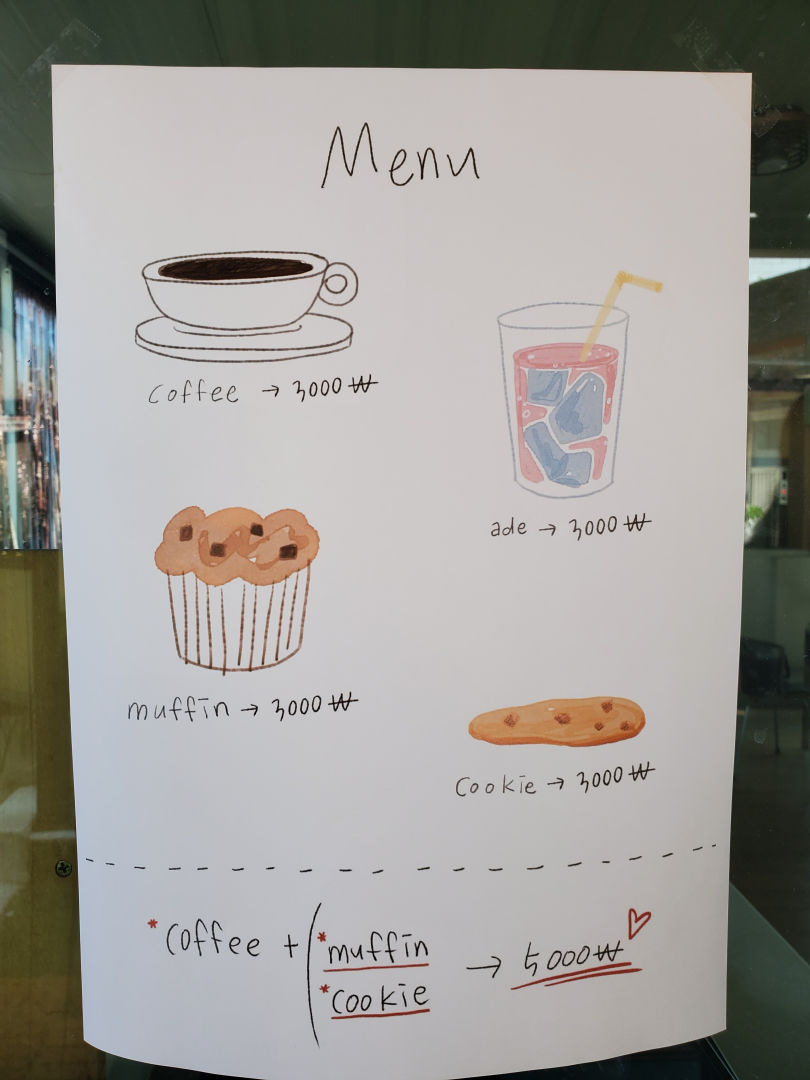 Menu
coffee → 3000 ₩
ade → 3000 ₩
muffin → 3000 ₩
Cookie → 3000 ₩
*Coffee + ( *muffin → 5000₩ ♡
*cookie